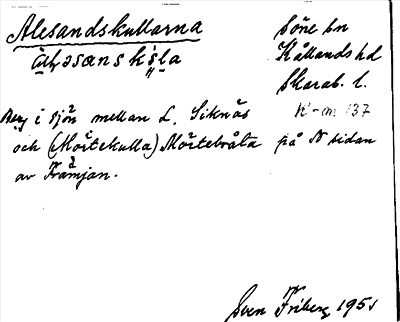 Alesandskullarna
Söne sn
Kållands hd
Skarab. l.
K-m. 137
Berg i sjön mellan L. Siknäs
och (Mörtekulla) Mörtebråta på N sidan
av Främjan.
Sven Friberg 1951